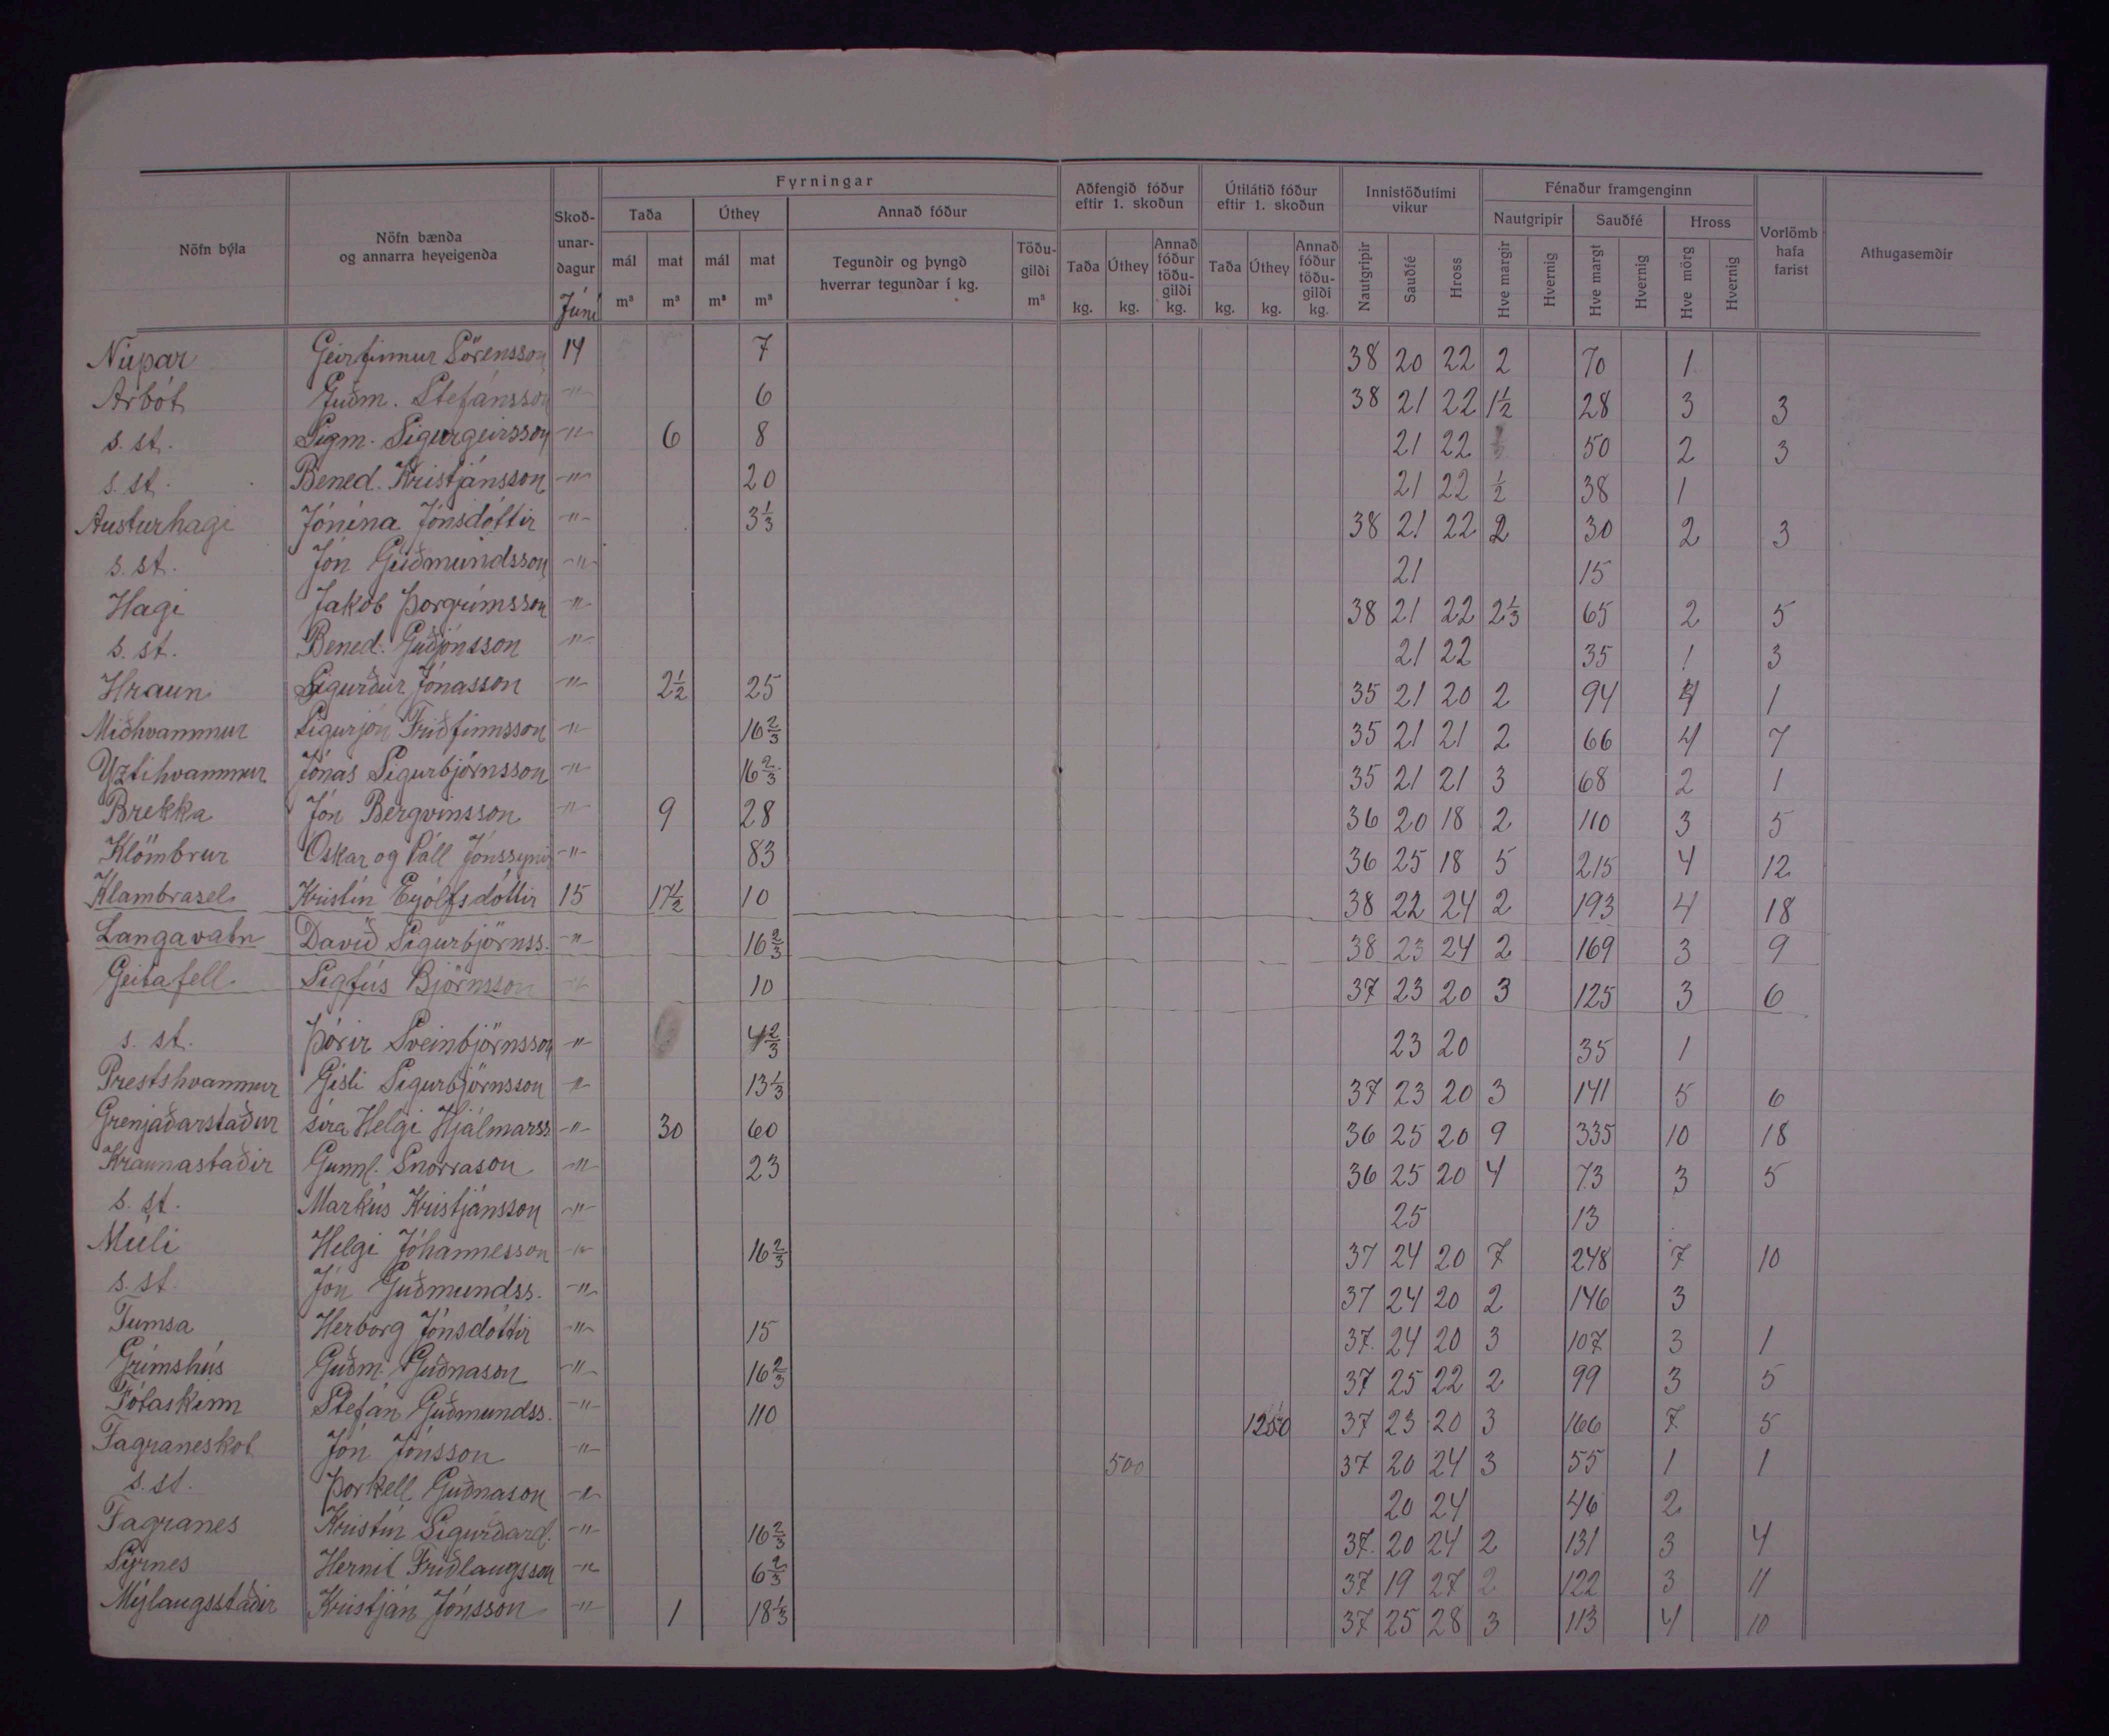 Fyrningar
Aðfengið fóður eftir 1. skoðun
Útilátið fóður eftir 1. skoðun
Innistöðutími vikur
Fénaður framgenginn
Nöfn býla
Nöfn bænda og annarra heyeigenda
Skoð-unar-dagur Júní
Taða
Úthey
Annað fóður
Nautgripir
Sauðfé
Hross
Vorlömb hafa farist
Athugasemdir
mál m³
mat m³
mál m³
mat m³
Tegundir og þyngd hverrar tegundar í kg.
Töðu-gildi m³
Taða kg.
Úthey kg.
Annað fóður töðu-gildi kg.
Taða kg.
Úthey kg.
Annað fóður töðu-gildi kg.
Nautgripir
Sauðfé
Hross
Hve margir
Hvernig
Hve margt
Hvernig
Hve mörg
Hvernig
Núpar Geirfinnur Sörensson 14 7 38 20 22 2 70 1
Árbót Guðm. Stefánsson -"- 6 38 21 22 1½ 28 3 3
s. st. Sigm. Sigurgeirsson -"- 6 8 21 22 50 2 3
s. st. Bened. Kristjánsson -"- 20 21 22 ½ 38 1
Austurhagi Jónína Jónsdóttir -"- 3⅓ 38 21 22 2 30 2 3
s. st. Jón Guðmundsson -"- 21 15
Hagi Jakob Þorgrímsson -"- 38 21 22 2⅓ 65 2 5
s. st. Bened. Guðjónsson -"- 21 22 35 1 3
Hraun Sigurður Jónasson -"- 2½ 25 35 21 20 2 94 4 1
Miðhvammur Sigurjón Friðfinnsson -"- 16⅔ 35 21 21 2 66 4 7
Yztihvammur Jónas Sigurbjörnsson -"- 16⅔ 35 21 21 3 68 2 1
Brekka Jón Bergvinsson -"- 9 28 36 20 18 2 110 3 5
Klömbrur Óskar og Páll Jónssynir -"- 83 36 25 18 5 215 4 12
Klambrasel Kristín Eyólfsdóttir 15 17½ 10 38 22 24 2 193 4 18
Langavatn Davíð Sigurbjörnss. -"- 16⅔ 38 23 24 2 169 3 9
Geitafell Sigfús Björnsson -"- 10 37 23 20 3 125 3 6
s. st. Þórir Sveinbjörnsson -"- 4⅔ 23 20 35 1
Prestshvammur Gísli Sigurbjörnsson -"- 13⅓ 37 23 20 3 141 5 6
Grenjaðarstaður síra Helgi Hjálmarss -"- 30 60 36 25 20 9 335 10 18
Kraunastaðir Gunnl. Snorrason -"- 23 36 25 20 4 73 3 5
s. st. Markús Kristjánsson -"- 25 13
Múli Helgi Jóhannesson -"- 16⅔ 37 24 20 7 248 7 10
s. st. Jón Guðmundss. -"- 37 24 20 2 146 3
Tumsa Herborg Jónsdóttir -"- 15 37 24 20 3 107 3 1
Grímshús Guðm. Guðnason -"- 16⅔ 37 25 22 2 99 3 5
Fótaskinn Stefán Guðmundss. -"- 110 1250 37 23 20 3 166 7 5
Fagraneskot Jón Jónsson -"- 500 37 20 24 3 55 1 1
s. st. Þorkell Guðnason -"- 20 24 46 2
Fagranes Kristín Sigurðard. -"- 16⅔ 37 20 24 2 131 3 4
Sýrnes Hernit Friðlaugsson -"- 6⅔ 37 19 27 2 122 3 11
Mýlaugsstaðir Kristján Jónsson -"- 1 18⅓ 37 25 28 3 113 4 10